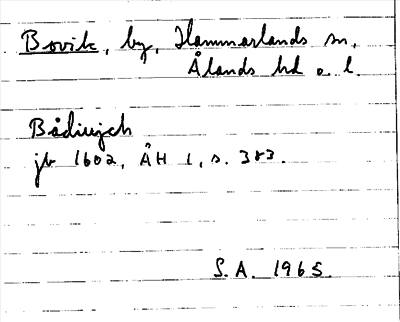 Bovik, by, Hammarlands sn,
Ålands hd o. l.
Bådiuijch
jb 1602, ÅH 1, s. 383.
S.A. 1965.